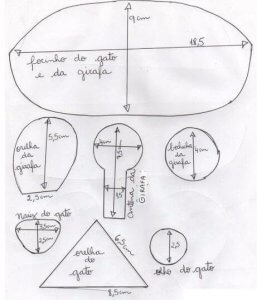 9cm
18,5
focinho do gato
e da girafa
5,5cm
orelha
da
girafa
2,5cm
3cm
antena da
GIRAFA
bochecha
da
girafa
4cm
nariz do gato
3,5cm
2,5cm
6,5cm
orelha
do
gato
8,5cm
2,5
olho do gato